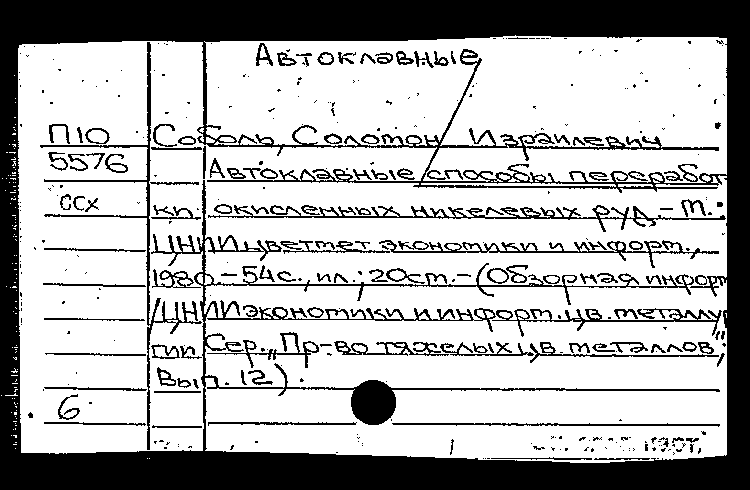 Автоклавные
П10 Соболь, Соломон Израилевич
5576 Автоклавные способы переработ-
ссх ки окисленных никелевых руд. – М.:
ЦНИИцветмет экономики и информ.,
1980. – 54с., ил.; 20см. – (Обзорная информ
/ЦНИИэкономики и информ. цв. металлур
гии. Сер. „Пр-во тяжелых цв. металлов";
Вып. 12).
6
карт.